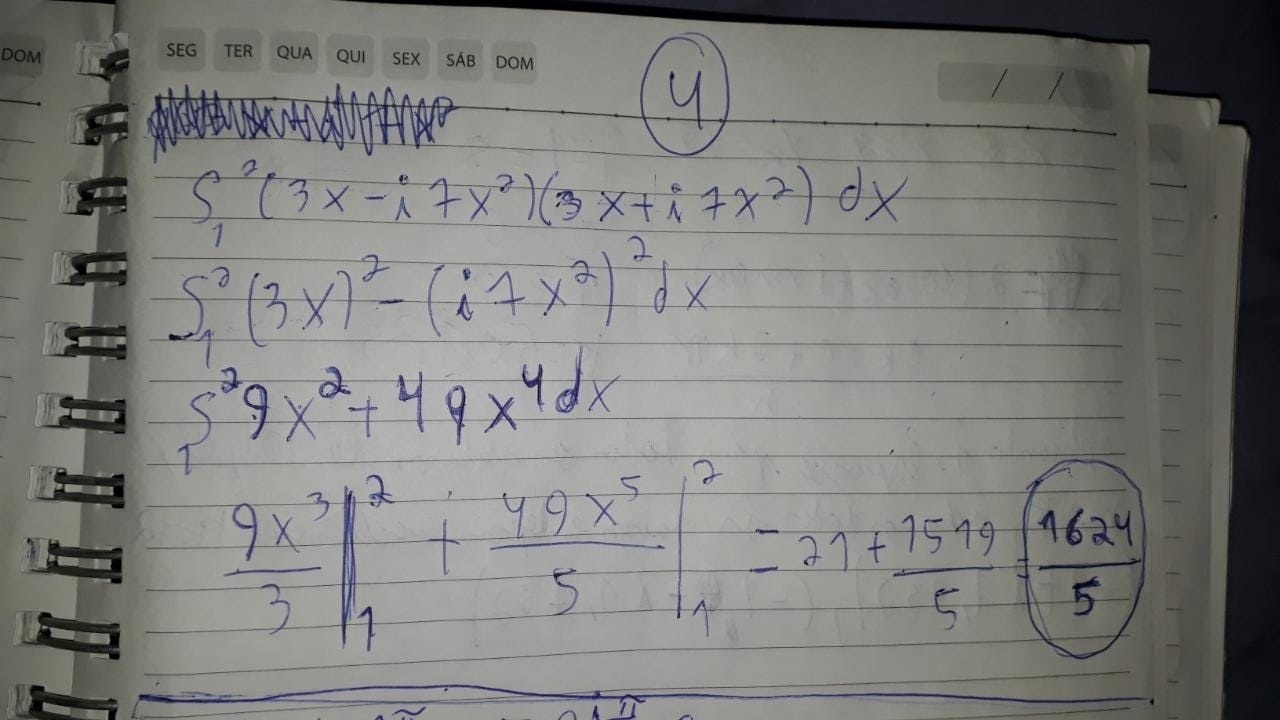 DOM
SEG TER QUA QUI SEX SÁB DOM
4
/ /
∫₁² (3x - i7x²)(3x + i7x²) dx
∫₁² (3x)² - (i7x²)² dx
∫₁² 9x² + 49x⁴ dx
9x³/3 |₁² + 49x⁵/5 |₁² = 21 + 1519/5 = 1624/5